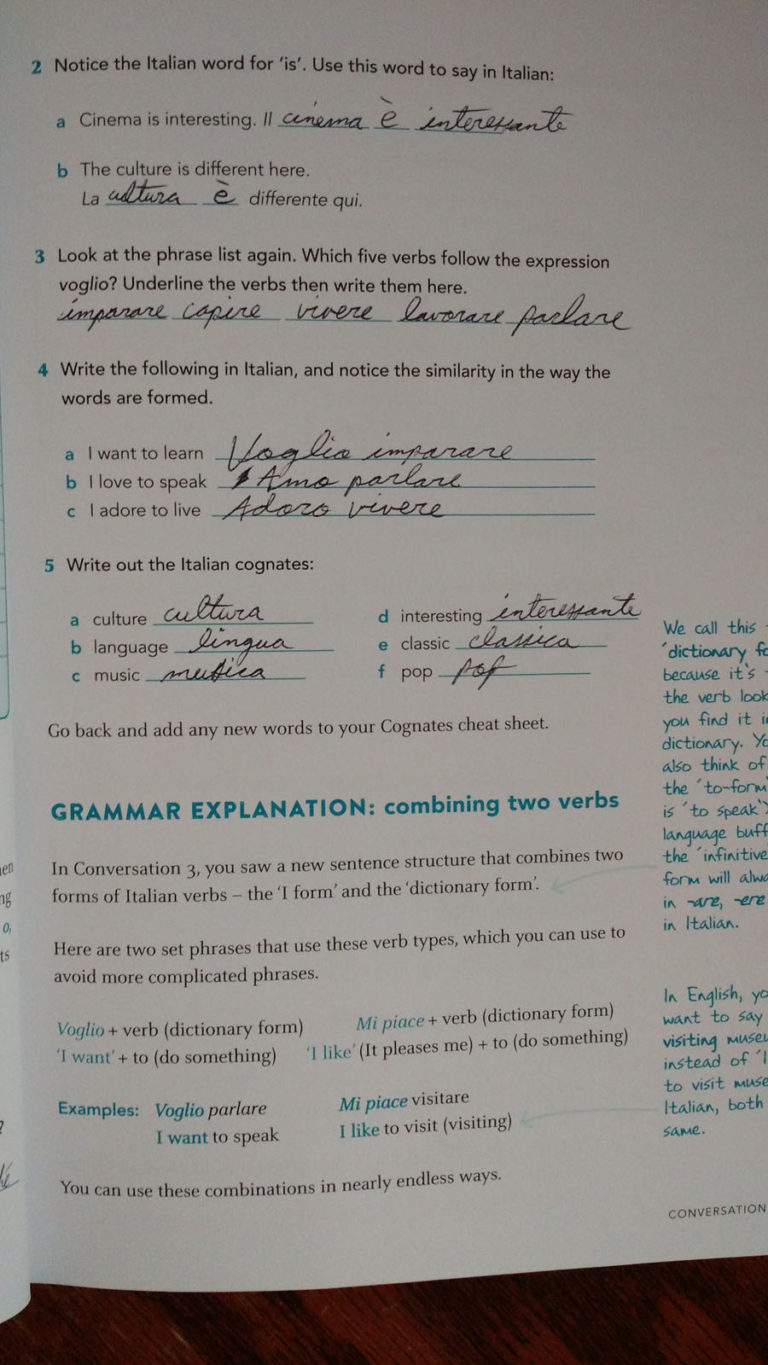 2 Notice the Italian word for ‘is’. Use this word to say in Italian:
a Cinema is interesting. Il cinema è interessante
b The culture is different here.
La cultura è differente qui.
3 Look at the phrase list again. Which five verbs follow the expression
voglio? Underline the verbs then write them here.
imparare capire vivere lavorare parlare
4 Write the following in Italian, and notice the similarity in the way the
words are formed.
a I want to learn Voglio imparare
b I love to speak Amo parlare
c I adore to live Adoro vivere
5 Write out the Italian cognates:
a culture cultura
b language lingua
c music musica
d interesting interessante
e classic classica
f pop pop
Go back and add any new words to your Cognates cheat sheet.
GRAMMAR EXPLANATION: combining two verbs
In Conversation 3, you saw a new sentence structure that combines two
forms of Italian verbs – the ‘I form’ and the ‘dictionary form’.
Here are two set phrases that use these verb types, which you can use to
avoid more complicated phrases.
Voglio + verb (dictionary form)
‘I want’ + to (do something)
Mi piace + verb (dictionary form)
‘I like’ (It pleases me) + to (do something)
Examples: Voglio parlare
I want to speak
Mi piace visitare
I like to visit (visiting)
You can use these combinations in nearly endless ways.
We call this
‘dictionary fo
because it's
the verb look
you find it i
dictionary. Yo
also think of
the ‘to-form’
is ‘to speak’)
language buff
the ‘infinitive
form will alwa
in -are, -ere
in Italian.
In English, yo
want to say
visiting museu
instead of ‘I
to visit muse
Italian, both
same.
CONVERSATION